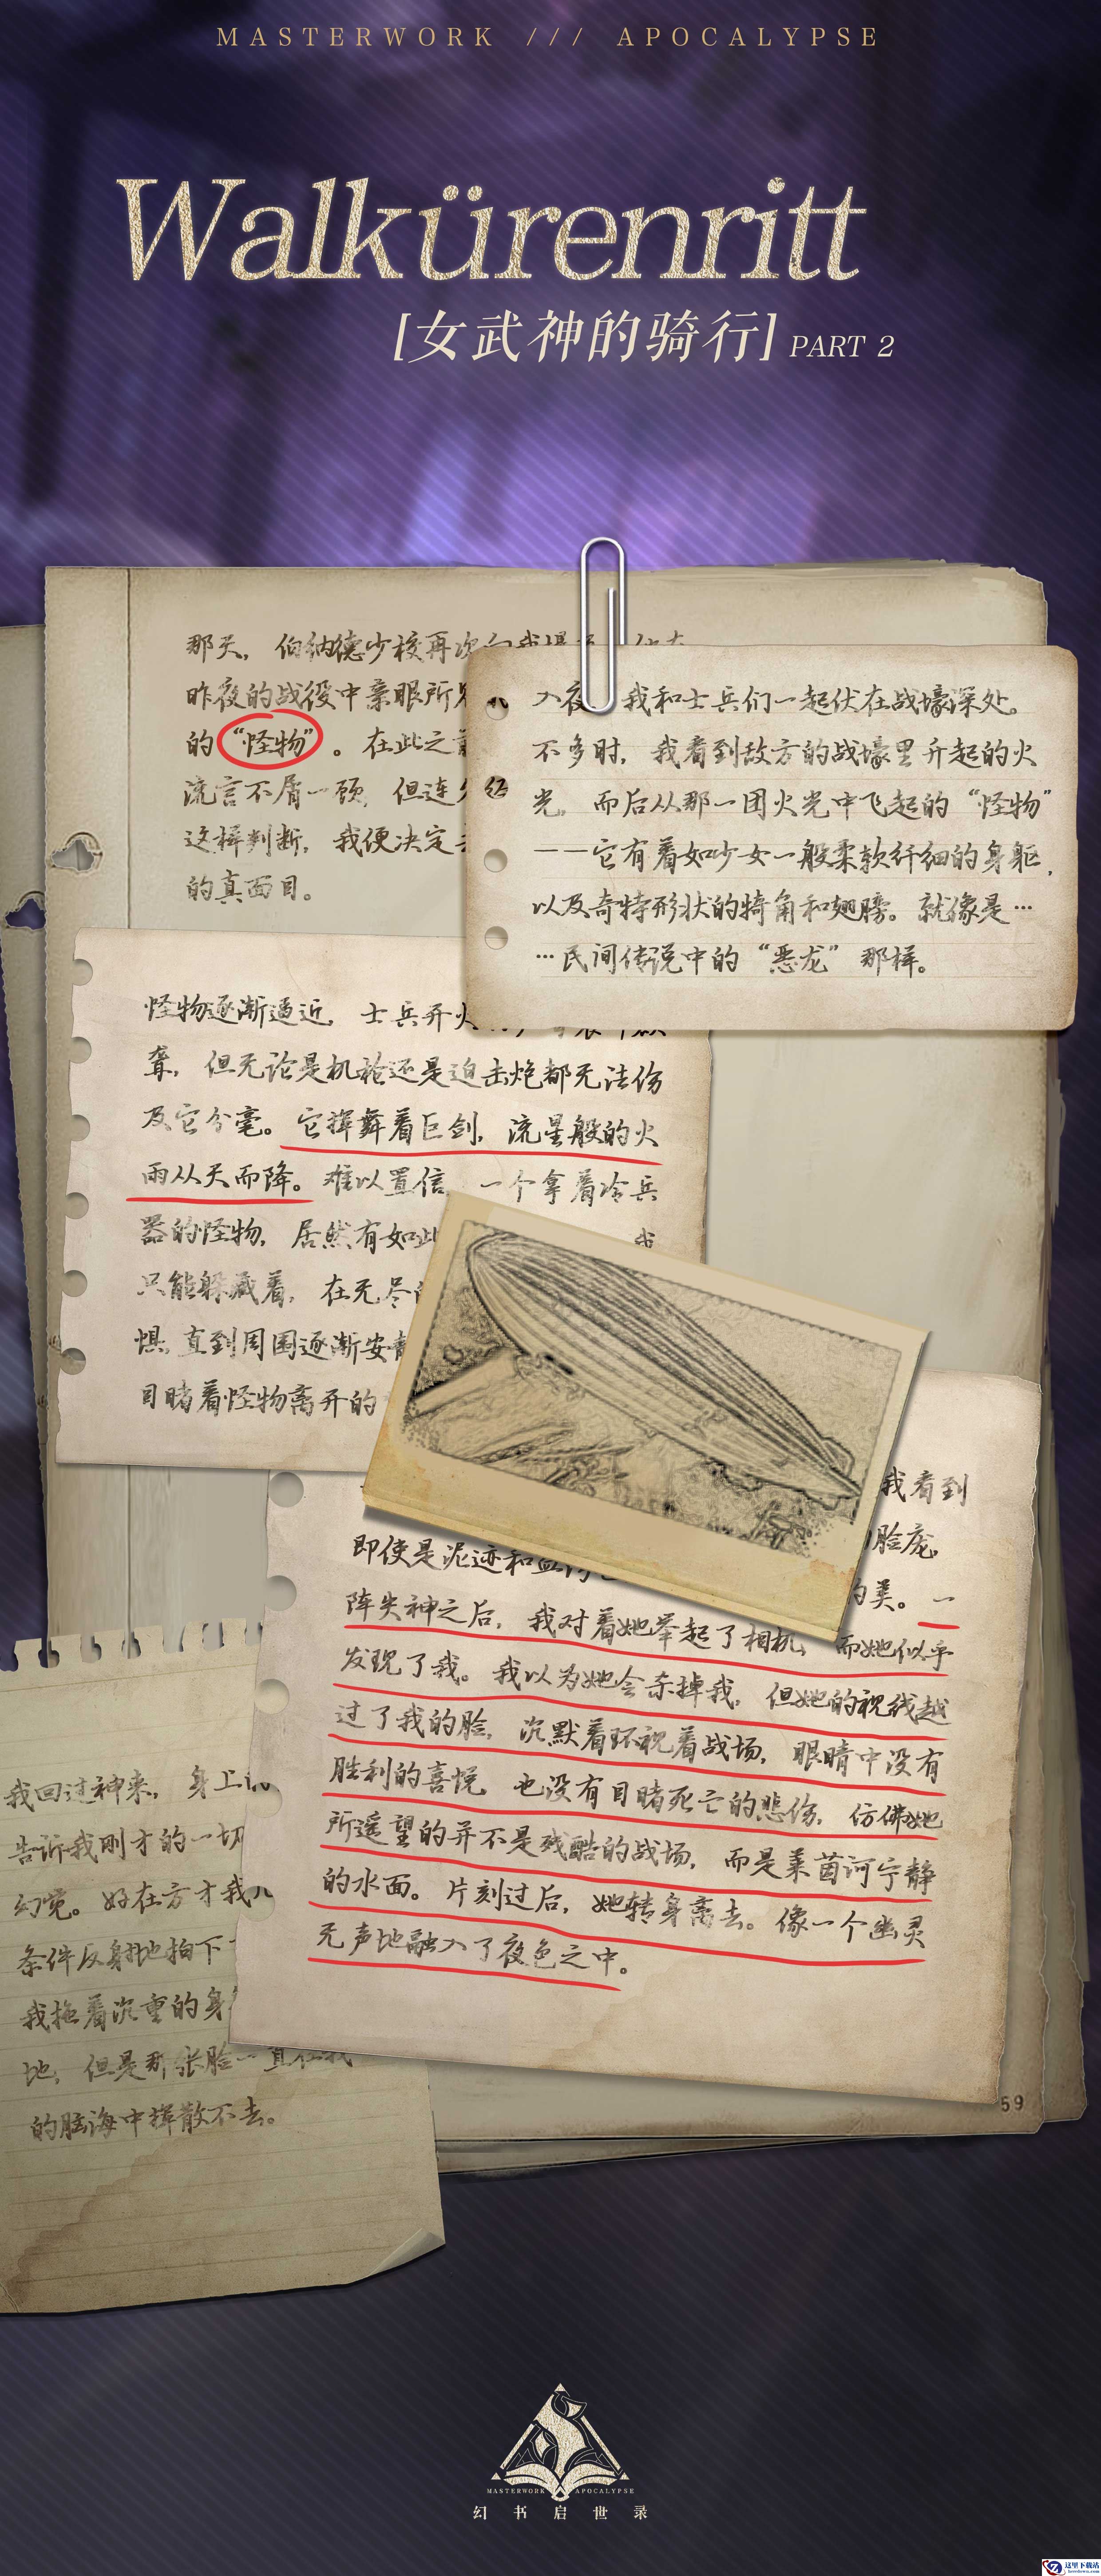 MASTERWORK /// APOCALYPSE
Walkürenritt
[女武神的骑行] PART 2
那天，伯纳德少校再次向我
昨夜的战役中亲眼所见
的“怪物”。在此之前
流言不屑一顾，但连
这样判断，我便决定
的真面目。
入夜 我和士兵们一起伏在战壕深处。
不多时，我看到敌方的战壕里升起的火
光，而后从那一团火光中飞起的“怪物”
——它有着如少女一般柔软纤细的身躯，
以及奇特形状的犄角和翅膀。就像是…
…民间传说中的“恶龙”那样。
怪物逐渐逼近，士兵开火
聋，但无论是机枪还是迫击炮都无法伤
及它分毫。它挥舞着巨剑，流星般的火
雨从天而降。难以置信，一个拿着冷兵
器的怪物，居然有如此 我
只能躲藏着，在无尽
惧，直到周围逐渐安静
目睹着怪物离开的
我看到
脸庞，
即使是泥迹和血污
的美。一
阵失神之后，我对着她举起了相机，而她似乎
发现了我。我以为她会杀掉我，但她的视线越
过了我的脸，沉默着环视着战场，眼睛中没有
胜利的喜悦，也没有目睹死亡的悲伤，仿佛她
所遥望的并不是残酷的战场，而是莱茵河宁静
的水面。片刻过后，她转身离去。像一个幽灵
无声地融入了夜色之中。
我回过神来，身上
告诉我刚才的一切
幻觉。好在方才我
条件反射地拍下
我拖着沉重的身
地，但是那张脸一直在我
的脑海中挥散不去。
59
MASTERWORK APOCALYPSE
幻书启世录
这里下载站